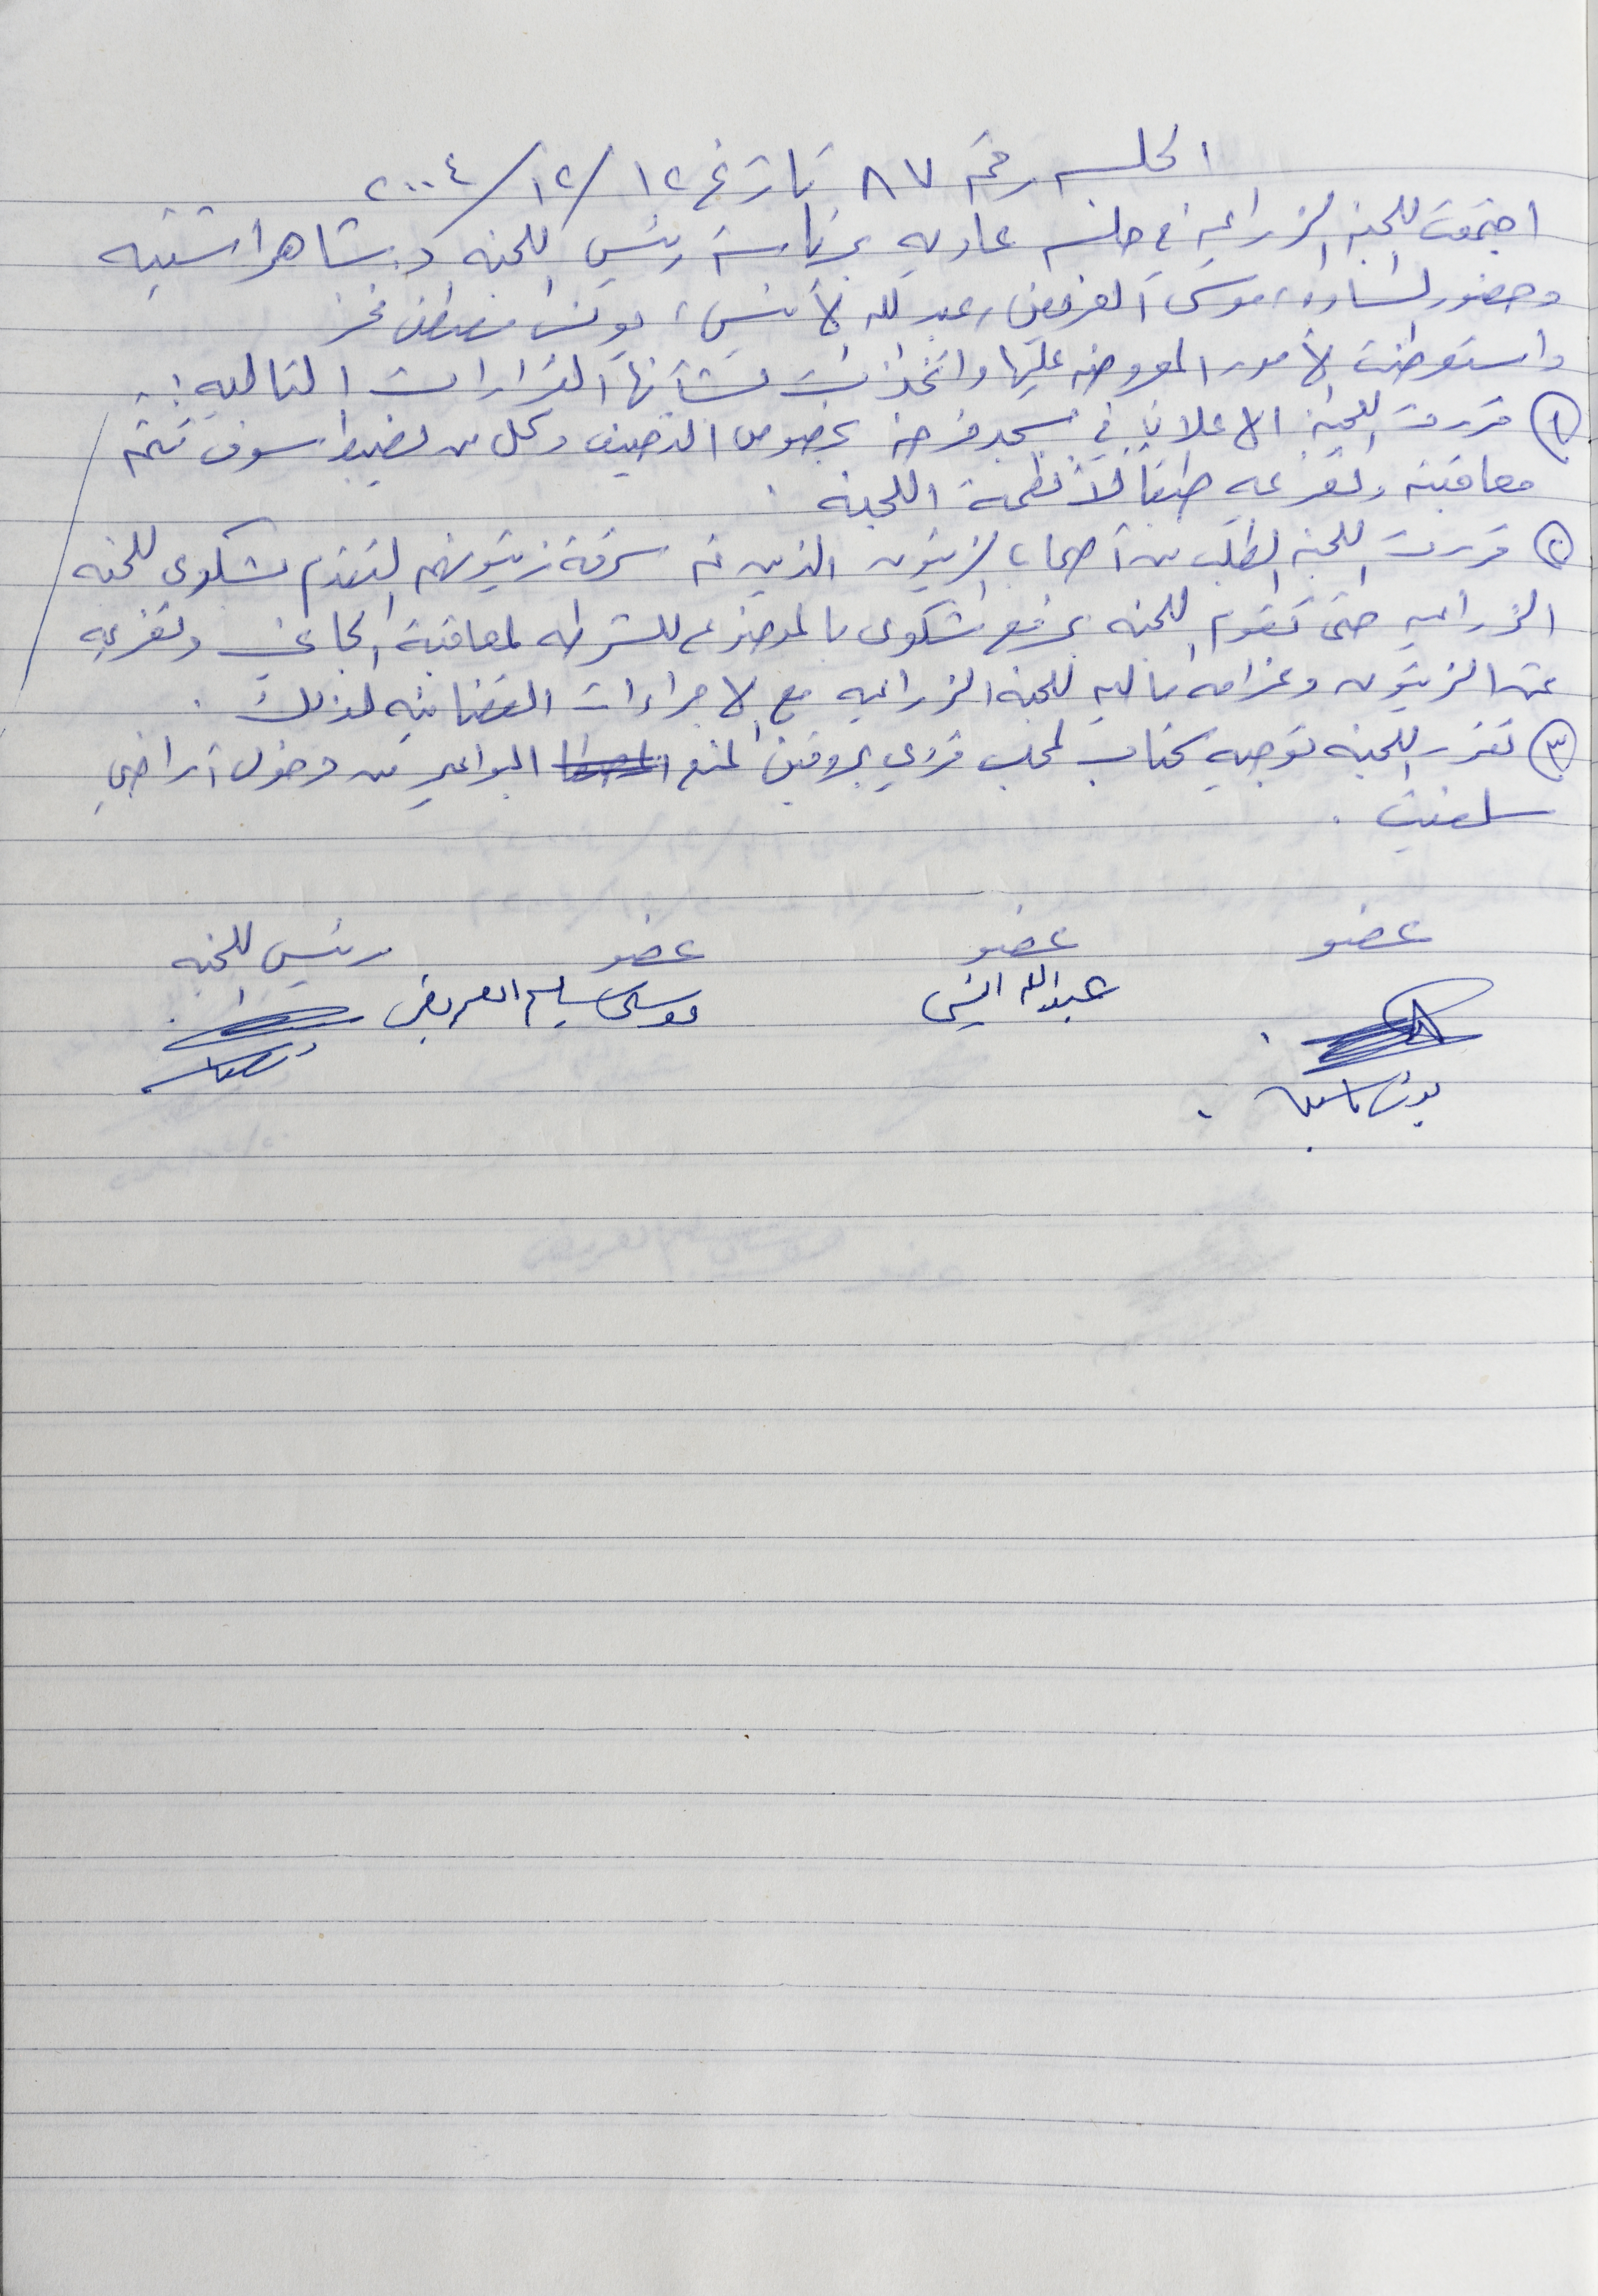 الجلسه رقم ٨٧ تاريخ ١٢/١٢/٢٠٠٤
اجتمعت اللجنه الزراعيه في جلسه عاديه برئاسة رئيس اللجنه د. شاهر اشتيه
وحضور الساده، موسى العفريفي، عبدالله الأنيس، يونس مصطفى
واستعرضت الأمور المعروضه عليها واتخذت بشأنها القرارات التاليه :-
١ قررت اللجنه الاعلان في بخصوص التصييف وكل من يضبط سوف تتم
معاقبته وتغريمه طبقاً لأنظمة اللجنه .
٢ قررت اللجنه الطلب من أصحاب الزيتون الذين تم سرقة زيتونهم التقدم بشكوى للجنه
الزراعيه حتى تقوم اللجنه برفع شكوى بالموضوع للشرطه لمعاقبة الجاني وتغريمه
ثمن الزيتون وغرامه ماليه للجنه الزراعيه مع الاجراءات القضائيه لذلك .
٣ تقرر اللجنه توجيه كتاب لمجلس قروي بروقين لمنع المواعير من دخول أراضي
سلفيت .
عضو عضو عضو رئيس اللجنه
عبدالله انيس موسى سليم
يونس